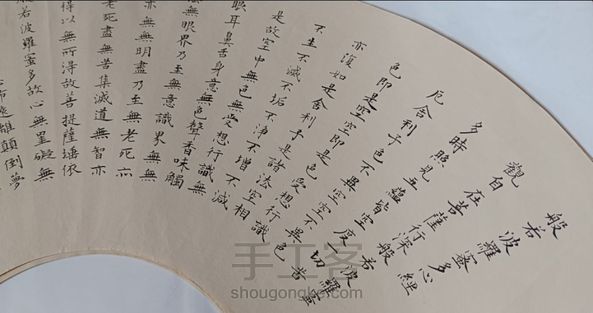 般若波羅蜜多心經
觀自在菩薩行深般若波羅蜜
多時照見五蘊皆空度一切苦
厄舍利子色不異空空不異色
色即是空空即是色受想行識
亦復如是舍利子是諸法空相
不生不滅不垢不淨不增不減
是故空中無色無受想行識無
眼耳鼻舌身意無色聲香味觸
無眼界乃至無意識界無無
亦無無明盡乃至無老死亦
老死盡無苦集滅道無智亦
得以無所得故菩提薩埵依
般若波羅蜜多故心無罣礙無
遠離顛倒夢
手工客
shougongke.com